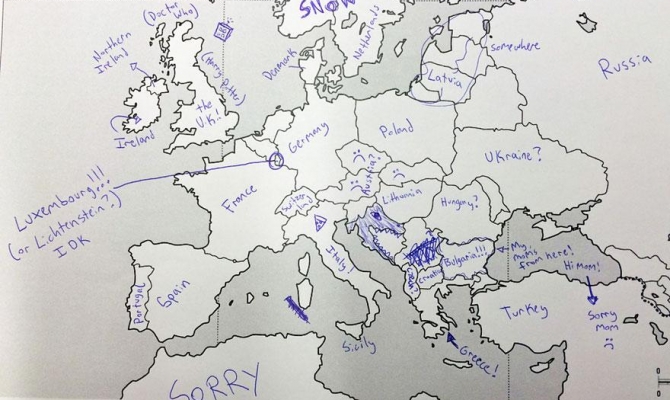 SNOW
(Doctor
Who)
(Harry Potter)
Netherlands
Northern
Ireland
Denmark
somewhere
Latvia
Russia
Ireland
the
UK!!
Germany
Poland
Ukraine?
Luxembourg!!!
(or Lichtenstein?)
IDK
France
Switzer
land
Austria?
Lithuania
Hungary?
Italy!
Croatia
Bulgaria!!!
My
mom's
from here!
Hi Mom!
Portugal
Spain
Turkey
Sorry
mom
Sicily
Greece!
SORRY